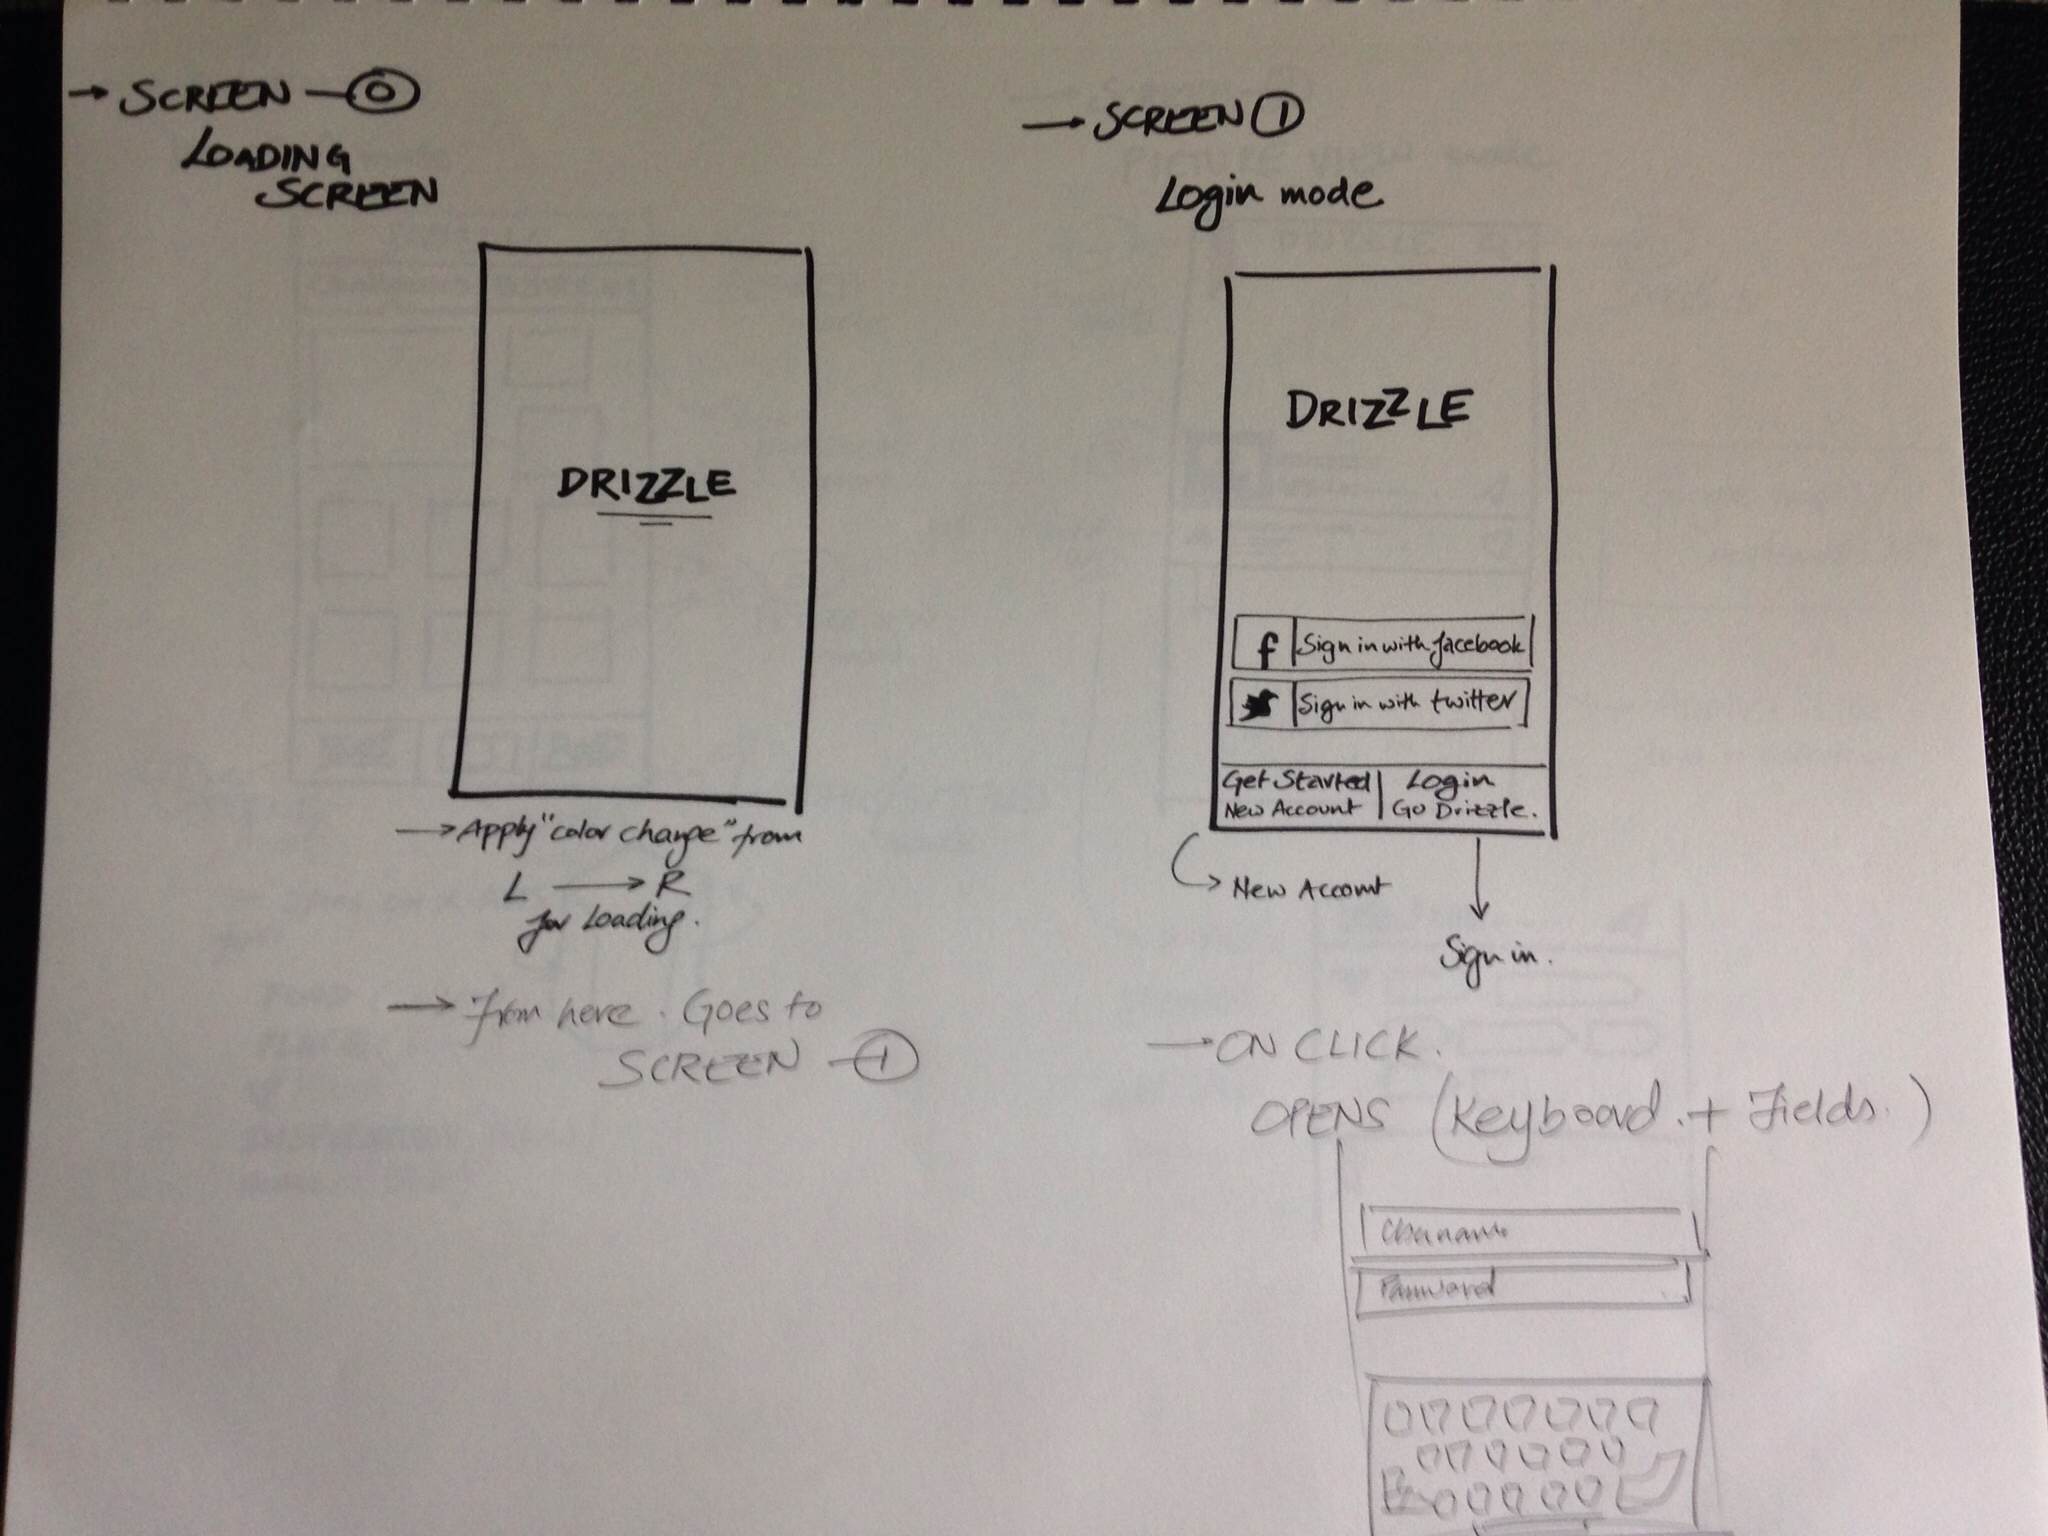 → SCREEN – 0
LOADING
SCREEN
DRIZZLE
→ Apply "color change" from
L → R
for Loading.
→ From here. Goes to
SCREEN – 1
→ SCREEN 1
Login mode
DRIZZLE
f Sign in with facebook
Sign in with twitter
Get Started | Login
New Account | Go Drizzle.
New Account
Sign in.
→ ON CLICK.
OPENS (Keyboard + Fields.)
Username
Password